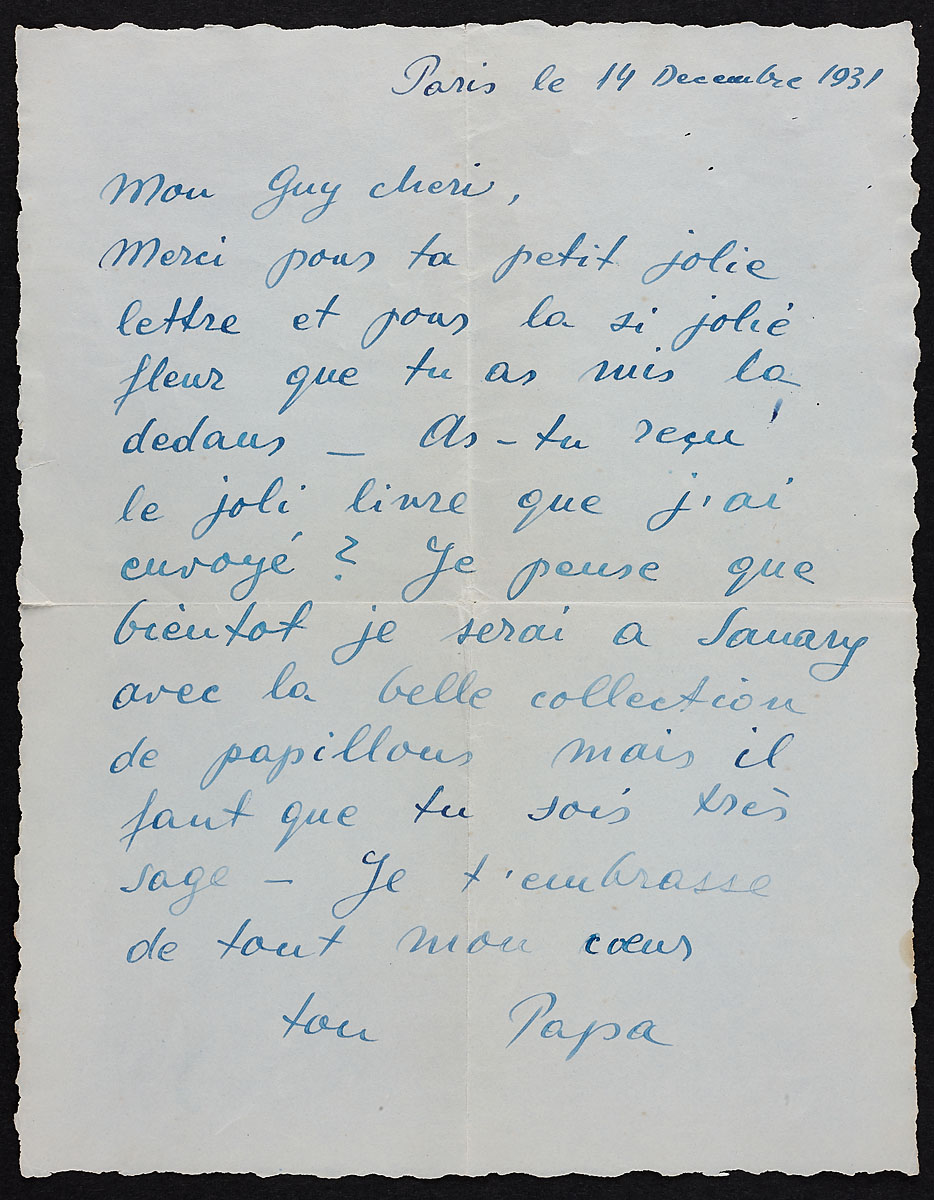 Paris le 14 Decembre 1931
Mon Guy cheri,
Merci pour ta petit jolie
lettre et pour la si jolie
fleur que tu as mis la
dedans _ As-tu reçu
le joli livre que j'ai
envoyé ? Je pense que
bientot je serai a Sanary
avec la belle collection
de papillons mais il
faut que tu sois très
sage _ Je t'embrasse
de tout mon cœur
ton Papa